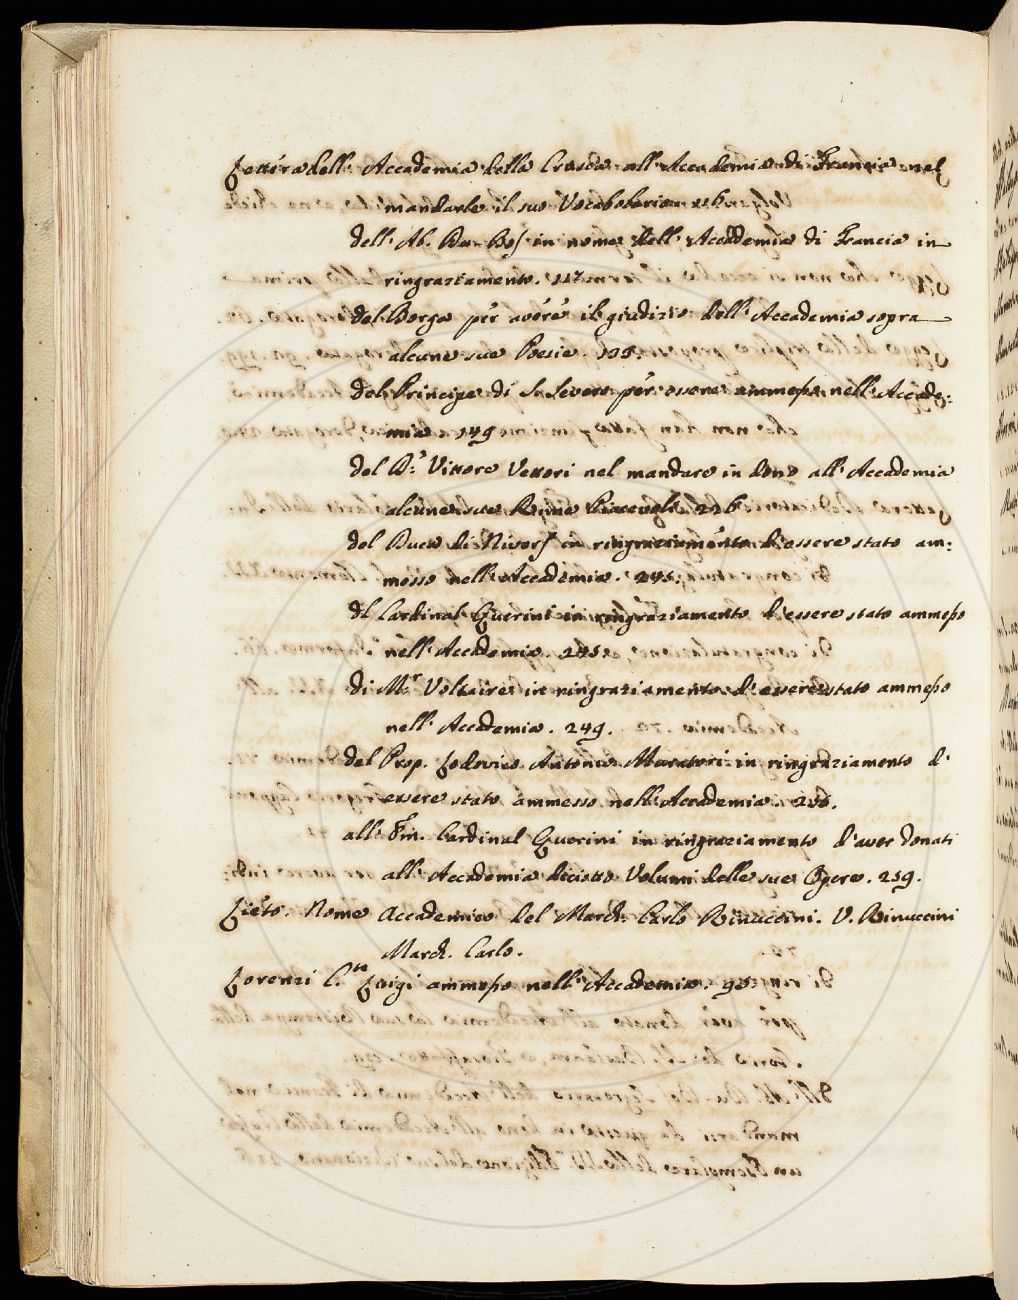 Lettera dell' Accademia della Crusca all' Accademia di Francia nel
mandarle il suo Vocabolario 116
dell' Ab. Du-Bos in nome dell' Accademia di Francia in
ringraziamento. 117
del Borga per avere il giudizio dell' Accademia sopra
alcune sue Poesie.
del Principe di S. Severo per essere ammesso nell' Accade:
mia 149
del D.r Vittore Vettori nel mandare in dono all' Accademia
alcune sue Rime Piacevoli.
del Duca di Nivers in ringraziamento d'essere stato am:
messo nell' Accademia. 245
del Cardinal Querini in ringraziamento d'essere stato ammesso
nell' Accademia. 245
di M.r Voltaire in ringraziamento d'essere stato ammesso
nell' Accademia. 249.
del Prop. Lodovico Antonio Muratori in ringraziamento d'
essere stato ammesso nell' Accademia.
all' Em. Cardinal Querini in ringraziamento d'aver donati
all' Accademia diciotto Volumi delle sue Opere. 259.
Lieto. Nome Accademico del March. Carlo Rinuccini. V. Rinuccini
March. Carlo.
Lorenzi C.te Luigi ammesso nell' Accademia.